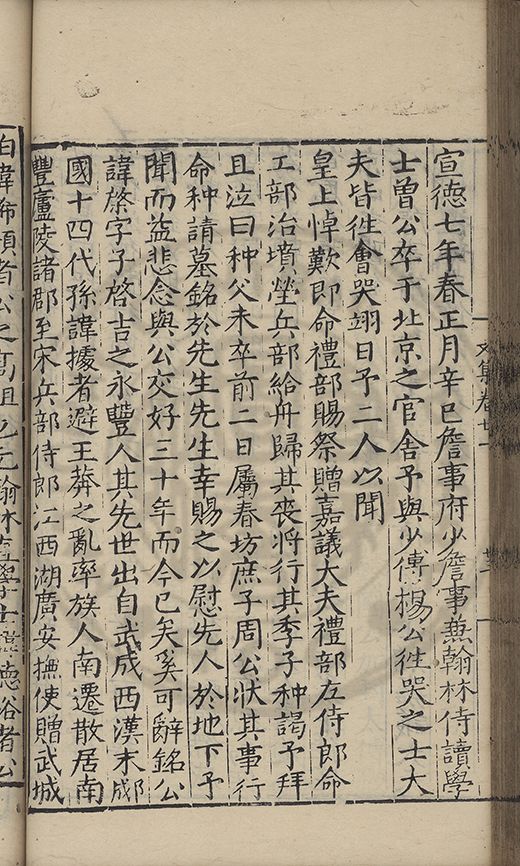 文集卷廿一
宣德七年春正月辛巳詹事府少詹事蕪翰林侍讀學
士曾公卒于北京之官舍予與少傅楊公徃哭之士大
夫皆徃會哭翊日予二人以聞
皇上悼歎即命禮部賜祭贈嘉議大夫禮部左侍郎命
工部治墳塋兵部給舟歸其䘮將行其季子种謁予拜
且泣曰种父未卒前二日屬春坊庶子周公狀其事行
命种請墓銘於先生先生幸賜之以慰先人於地下予
聞而益悲念與公交好三十年而今已矣奚可辭銘公
諱棨字子啓吉之永豐人其先世出自武成西漢末郕
國十四代孫諱據者避王莽之亂率族人南遷散居南
豐廬陵諸郡至宋兵部侍郎江西湖廣安撫使贈武城
伯諱
者公之髙祖也元翰林
學士
德裕者公